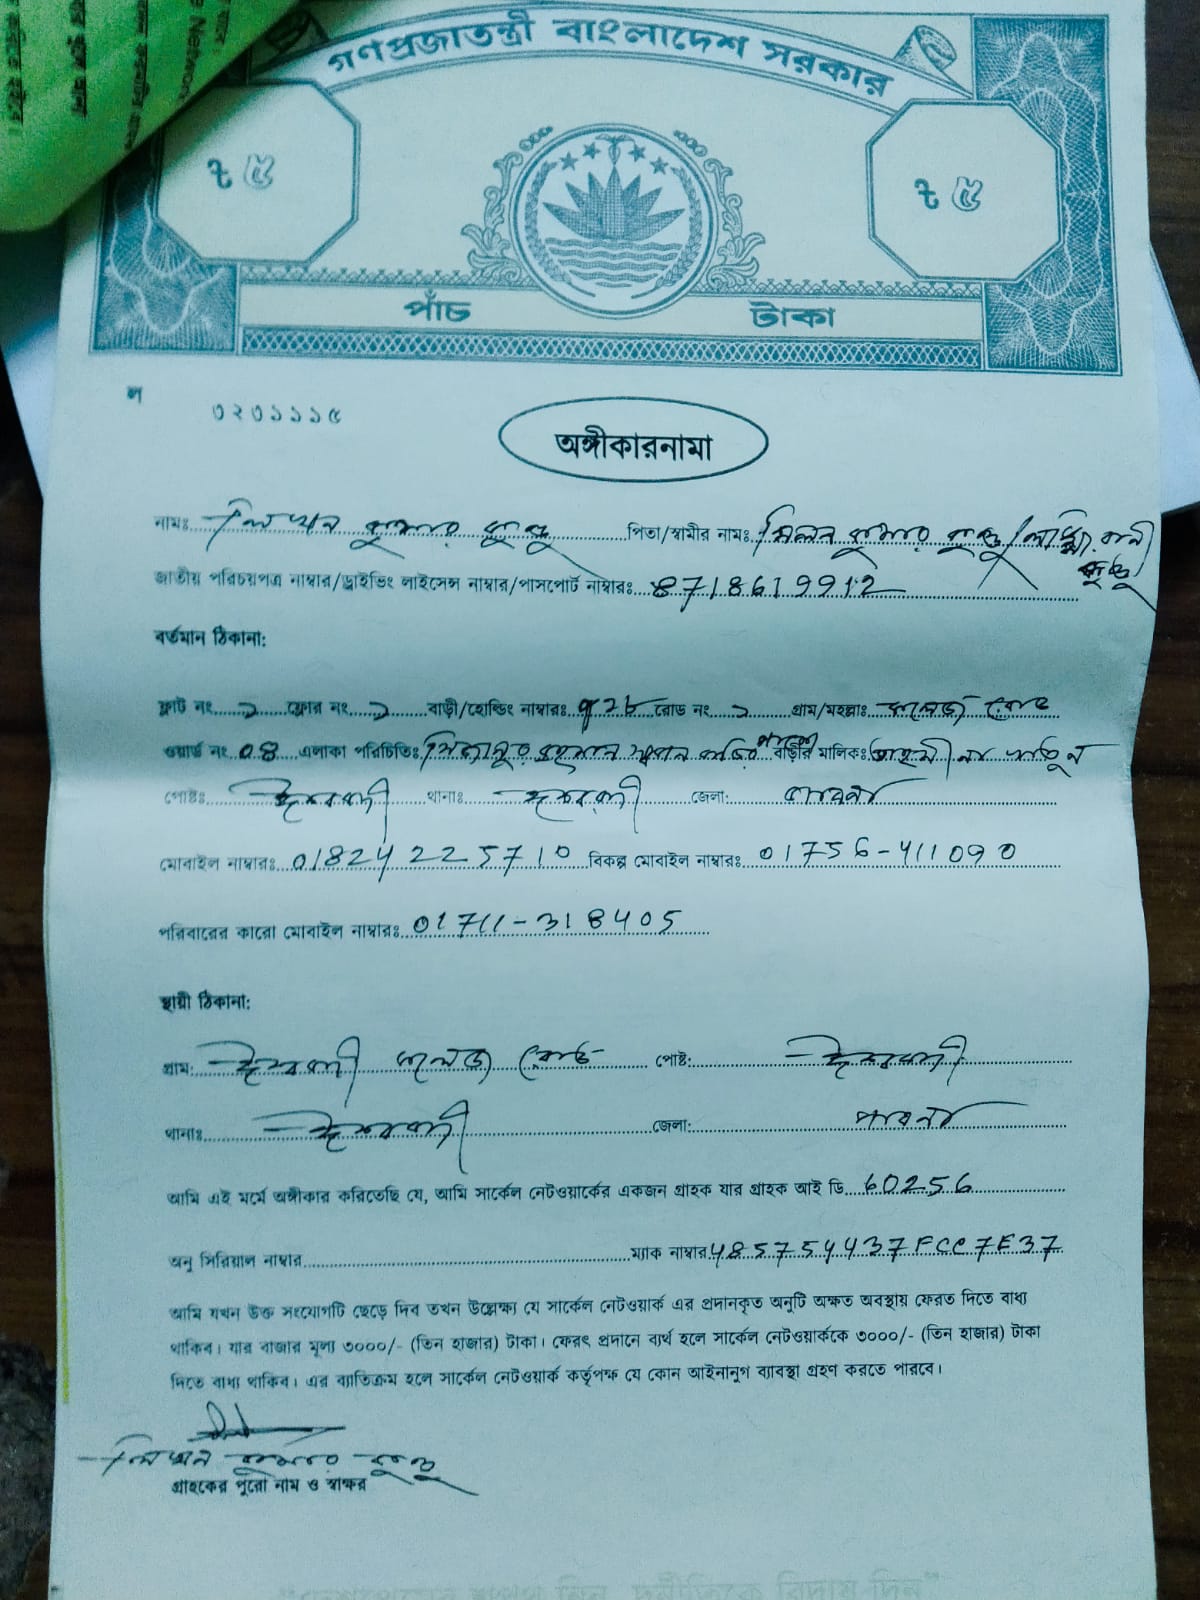 গণপ্রজাতন্ত্রী বাংলাদেশ সরকার
৳ ৫ ৳ ৫
পাঁচ টাকা
ল ৩২৩১১১৫
অঙ্গীকারনামা
নামঃ লিখন কুমার কুন্ডু পিতা/স্বামীর নামঃ মিলন কুমার কুন্ডু/ রানী
কুন্ডু
জাতীয় পরিচয়পত্র নাম্বার/ড্রাইভিং লাইসেন্স নাম্বার/পাসপোর্ট নাম্বারঃ 8718619912
বর্তমান ঠিকানা:
ফ্লাট নং ১ ফ্লোর নং ১ বাড়ী/হোল্ডিং নাম্বারঃ রোড নং ১ গ্রাম/মহল্লাঃ কলেজ রোড
ওয়ার্ড নং 04 এলাকা পরিচিতিঃ মিজানুর রহমান বাড়ির পাশে বাড়ীর মালিকঃ খাতুন
পোষ্টঃ ঈশ্বরদী থানাঃ ঈশ্বরদী জেলা: পাবনা
মোবাইল নাম্বারঃ 01824225710 বিকল্প মোবাইল নাম্বারঃ 01756-411090
পরিবারের কারো মোবাইল নাম্বারঃ 01711-318405
স্থায়ী ঠিকানা:
গ্রাম: ঈশ্বরদী কলেজ রোড পোষ্ট: ঈশ্বরদী
থানাঃ ঈশ্বরদী জেলা: পাবনা
আমি এই মর্মে অঙ্গীকার করিতেছি যে, আমি সার্কেল নেটওয়ার্কের একজন গ্রাহক যার গ্রাহক আই ডি 60256
অনু সিরিয়াল নাম্বার ম্যাক নাম্বার 485754437FCC7E37
আমি যখন উক্ত সংযোগটি ছেড়ে দিব তখন উল্লেক্ষ্য যে সার্কেল নেটওয়ার্ক এর প্রদানকৃত অনুটি অক্ষত অবস্থায় ফেরত দিতে বাধ্য
থাকিব। যার বাজার মূল্য ৩০০০/- (তিন হাজার) টাকা। ফেরৎ প্রদানে ব্যর্থ হলে সার্কেল নেটওয়ার্ককে ৩০০০/- (তিন হাজার) টাকা
দিতে বাধ্য থাকিব। এর ব্যতিক্রম হলে সার্কেল নেটওয়ার্ক কর্তৃপক্ষ যে কোন আইনানুগ ব্যাবস্থা গ্রহণ করতে পারবে।
লিখন কুমার কুন্ডু
গ্রাহকের পুরো নাম ও স্বাক্ষর